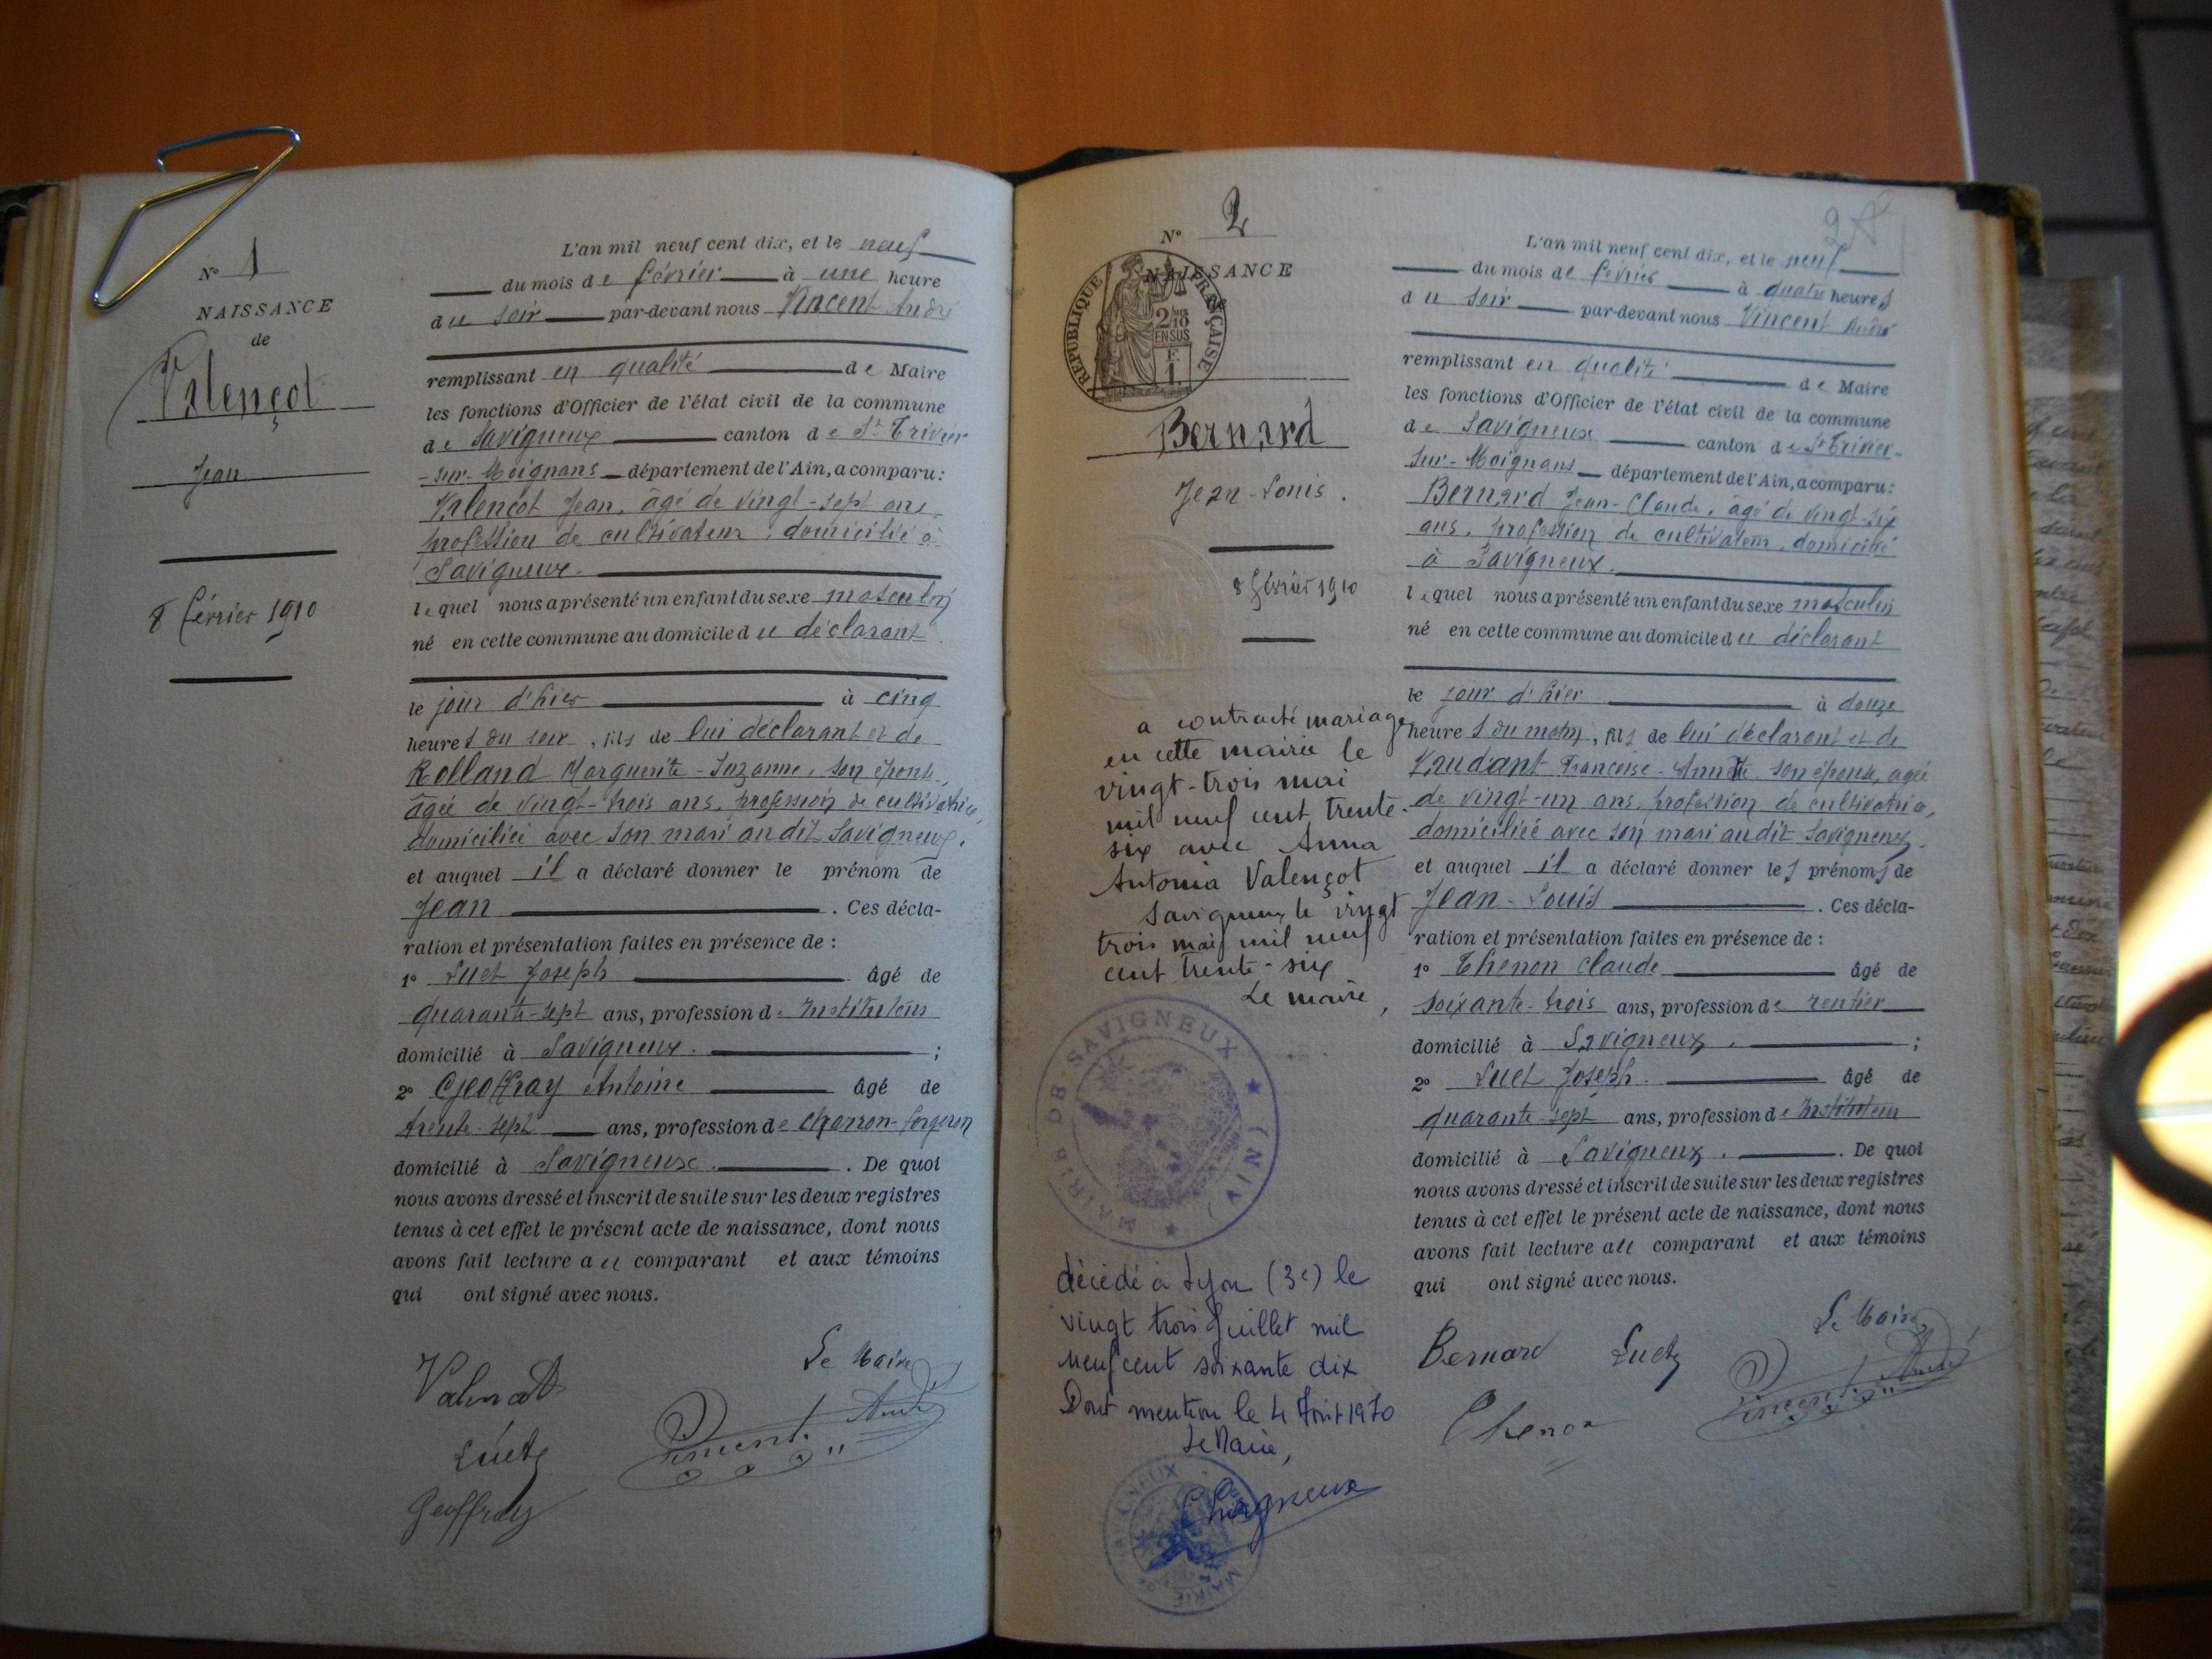 N° 1
NAISSANCE
de
Valençot
Jean
8 février 1910
L'an mil neuf cent dix, et le neuf
du mois de février à une heure
du soir par-devant nous Vincent André
remplissant en qualité de Maire
les fonctions d'Officier de l'état civil de la commune
de Savigneux canton de St Trivier
-sur-Moignans département de l'Ain, a comparu:
Valençot Jean, âgé de vingt-sept ans,
profession de cultivateur, domicilié à
Savigneux.
lequel nous a présenté un enfant du sexe masculin
né en cette commune au domicile du déclarant
le jour d'hier à cinq
heures du soir, fils de lui déclarant et de
Rolland Marguerite-Suzanne, son épouse,
âgée de vingt-trois ans, profession de cultivatrice,
domiciliée avec son mari audit Savigneux.
et auquel il a déclaré donner le prénom de
Jean. Ces décla-
ration et présentation faites en présence de :
1° Luet Joseph âgé de
quarante-sept ans, profession d'Instituteur
domicilié à Savigneux. ;
2° Geoffray Antoine âgé de
trente-sept ans, profession de charron-forgeron
domicilié à Savigneux. De quoi
nous avons dressé et inscrit de suite sur les deux registres
tenus à cet effet le présent acte de naissance, dont nous
avons fait lecture au comparant et aux témoins
qui ont signé avec nous.
Le Maire
Valençot
Vincent André
Luet
Geoffray
N° 2
NAISSANCE
RÉPUBLIQUE FRANÇAISE
2/10
EN SUS
F.
1
Bernard
Jean-Louis.
8 février 1910
a contracté mariage
en cette mairie le
vingt-trois mai
mil neuf cent trente-
six avec Anna
Antonia Valençot
Savigneux le vingt
trois mai mil neuf
cent trente-six
Le maire,
MAIRIE DE SAVIGNEUX (AIN)
décédé à Lyon (3e) le
vingt trois Juillet mil
neuf cent soixante dix
Dont mention le 4 Août 1970
Le Maire,
L'an mil neuf cent dix, et le neuf
du mois de février à quatre heures
du soir par-devant nous Vincent André
remplissant en qualité de Maire
les fonctions d'Officier de l'état civil de la commune
de Savigneux canton de St Trivier-
sur-Moignans département de l'Ain, a comparu:
Bernard Jean-Claude, âgé de vingt-six
ans, profession de cultivateur, domicilié
à Savigneux.
lequel nous a présenté un enfant du sexe masculin
né en cette commune au domicile du déclarant
le jour d'hier à douze
heures du matin, fils de lui déclarant et de
Françoise-Annette son épouse, âgée
de vingt-un ans, profession de cultivatrice,
domiciliée avec son mari audit Savigneux.
et auquel il a déclaré donner les prénoms de
Jean-Louis. Ces décla-
ration et présentation faites en présence de :
1° Thenon Claude âgé de
soixante-trois ans, profession de rentier
domicilié à Savigneux. ;
2° Luet Joseph. âgé de
quarante-sept ans, profession d'Instituteur
domicilié à Savigneux. De quoi
nous avons dressé et inscrit de suite sur les deux registres
tenus à cet effet le présent acte de naissance, dont nous
avons fait lecture au comparant et aux témoins
qui ont signé avec nous.
Le Maire
Bernard Luet
Vincent André
Thenon